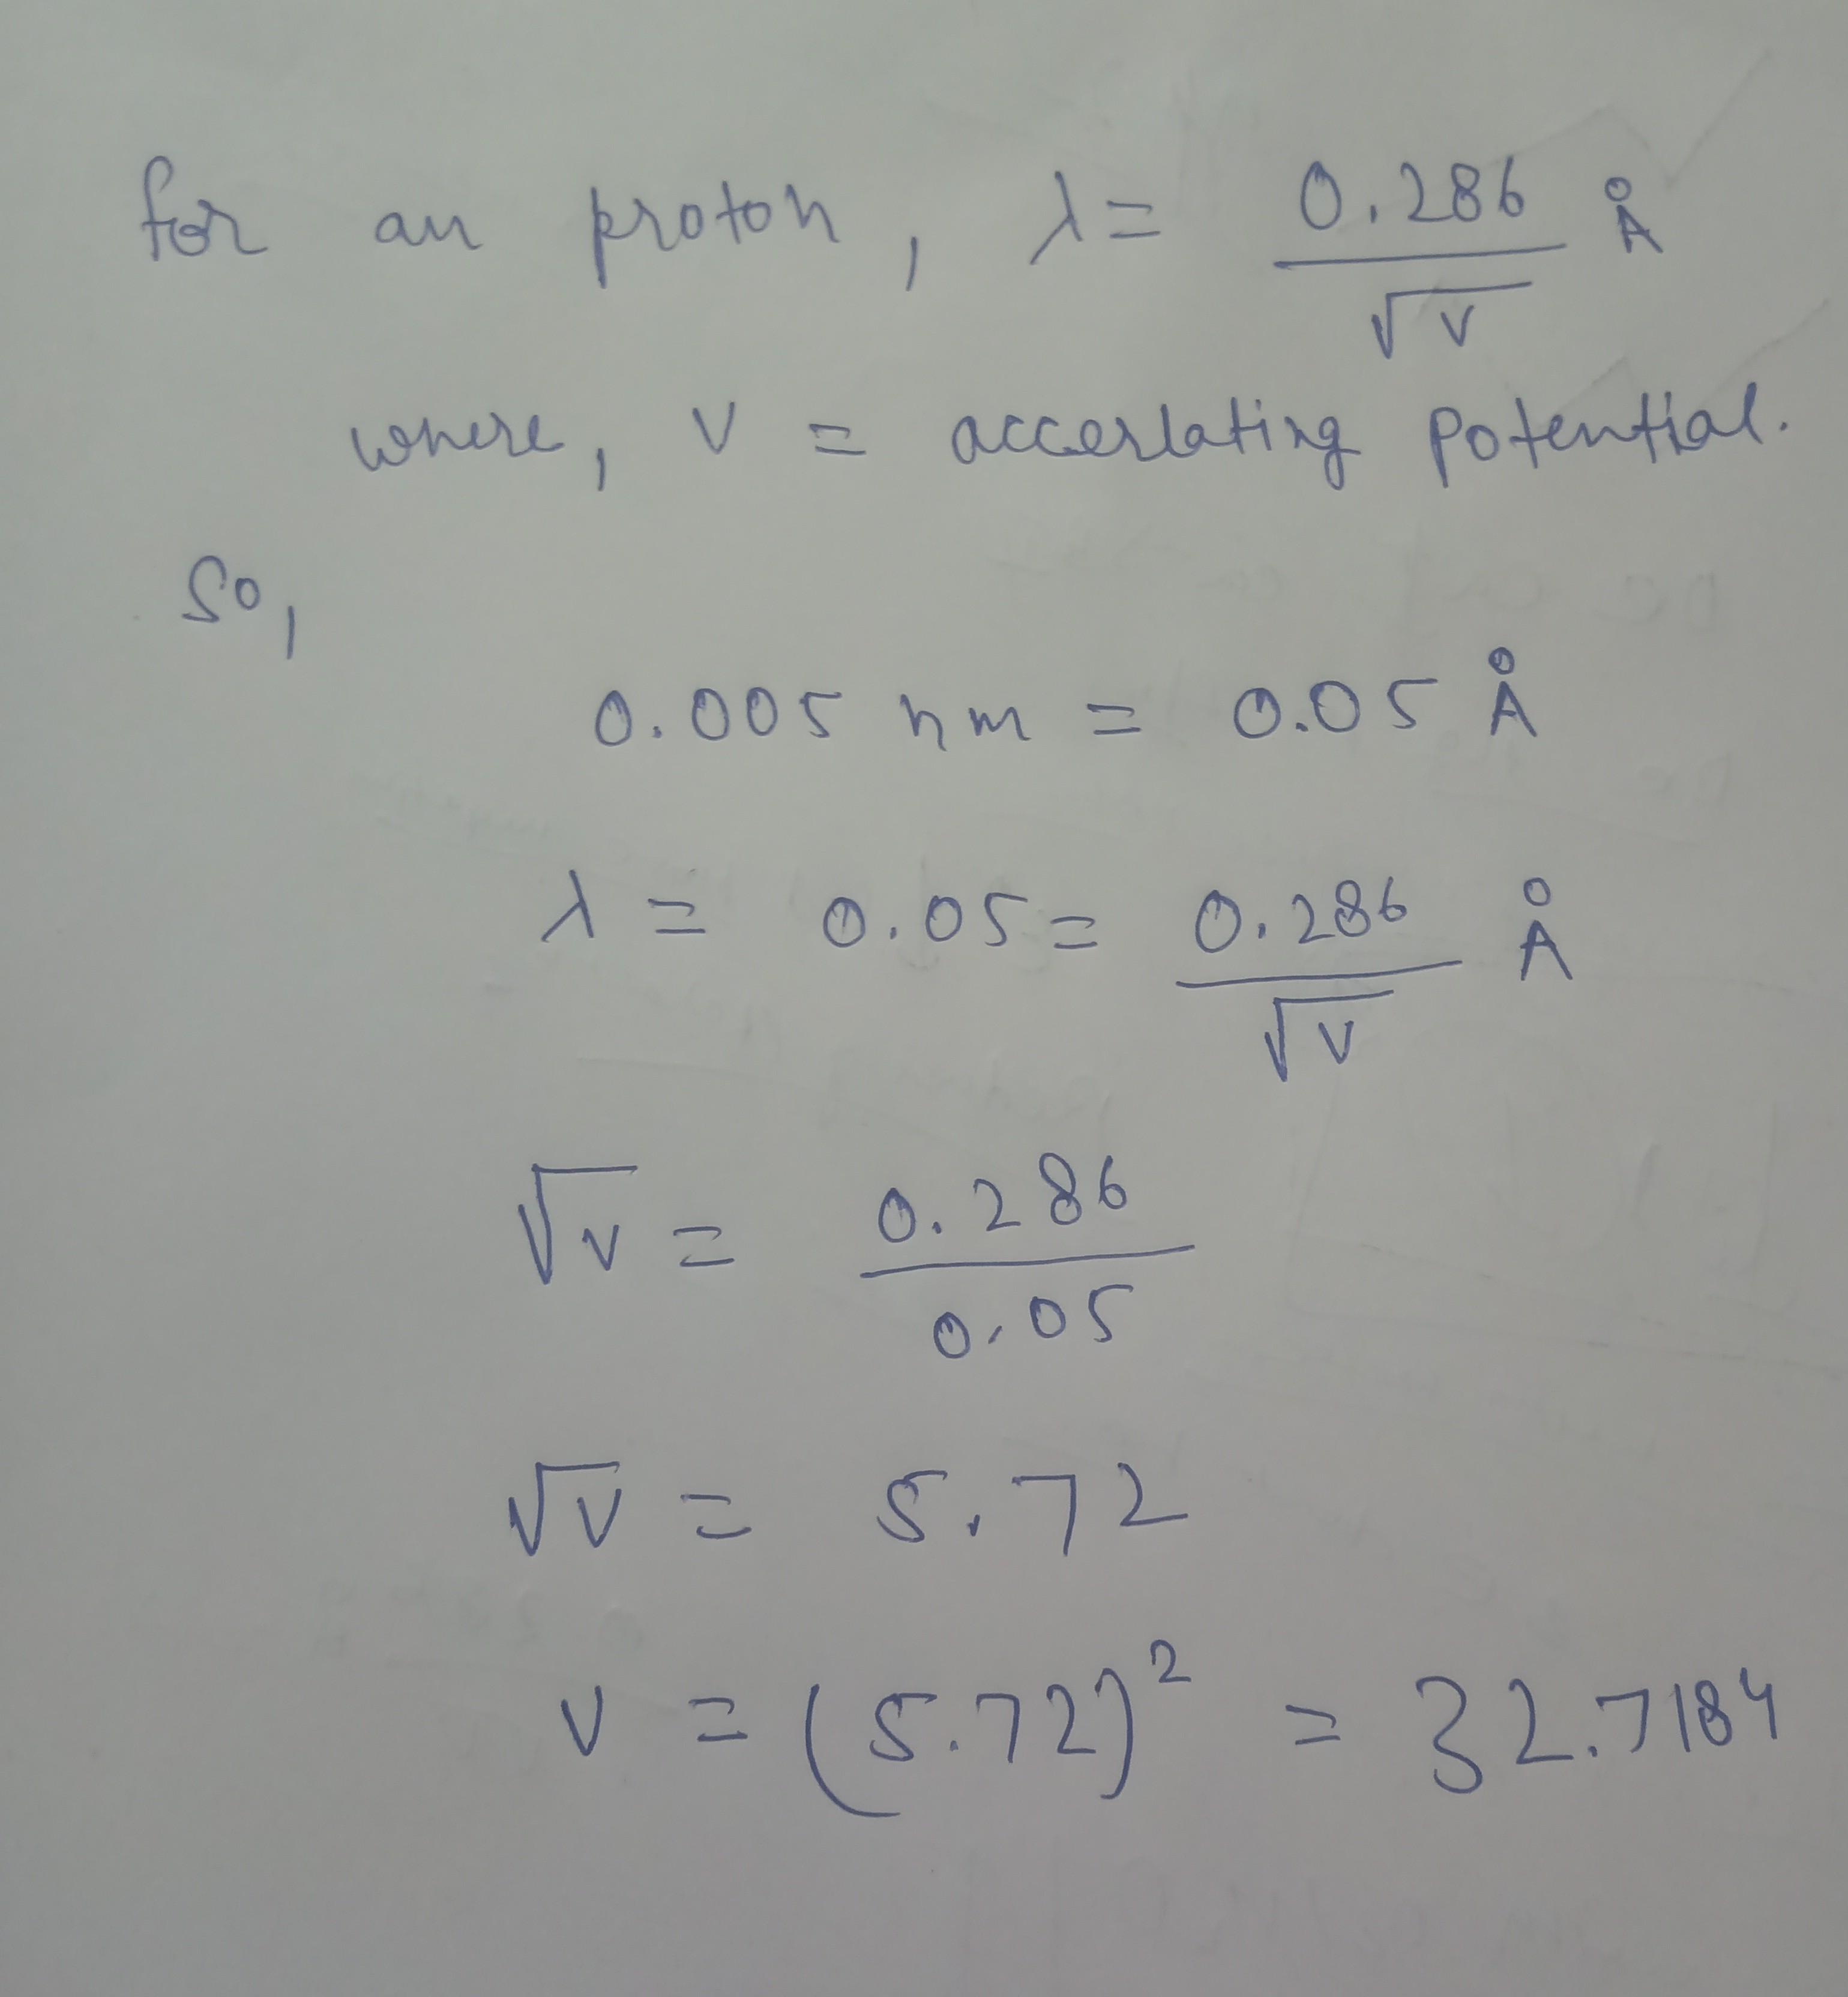 for an proton, λ = 0.286 / √V Å
where, V = accerlating potential.
So,
0.005 nm = 0.05 Å
λ = 0.05 = 0.286 / √V Å
√V = 0.286 / 0.05
√V = 5.72
V = (5.72)² = 32.7184